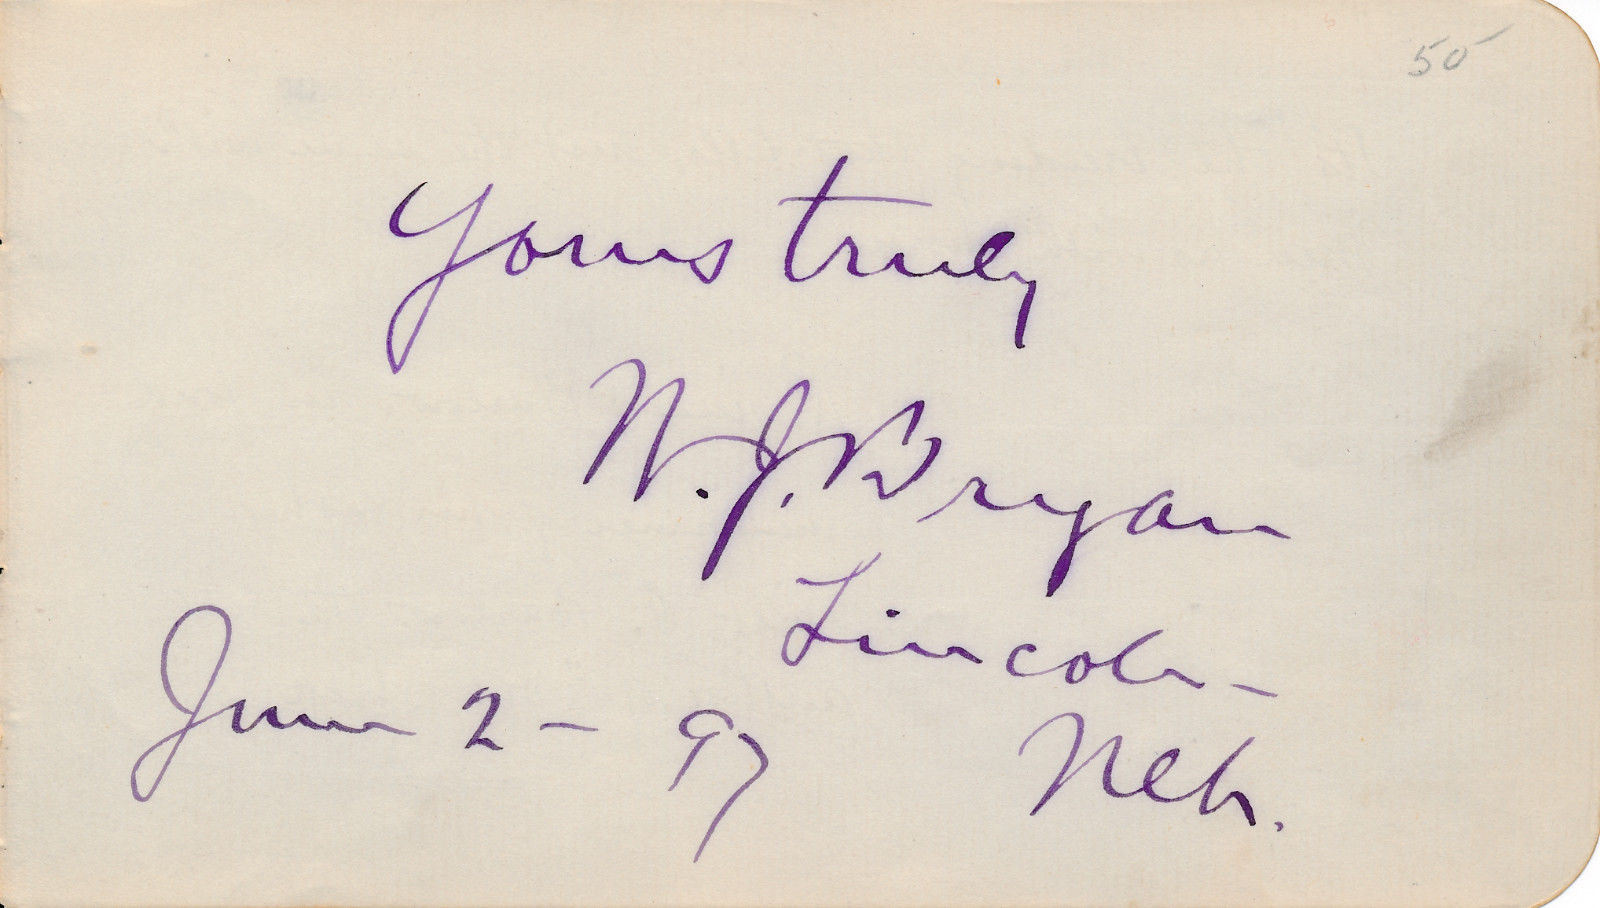 50
Yours truly
W. J. Bryan
Lincoln
June 2 - 97
Neb.